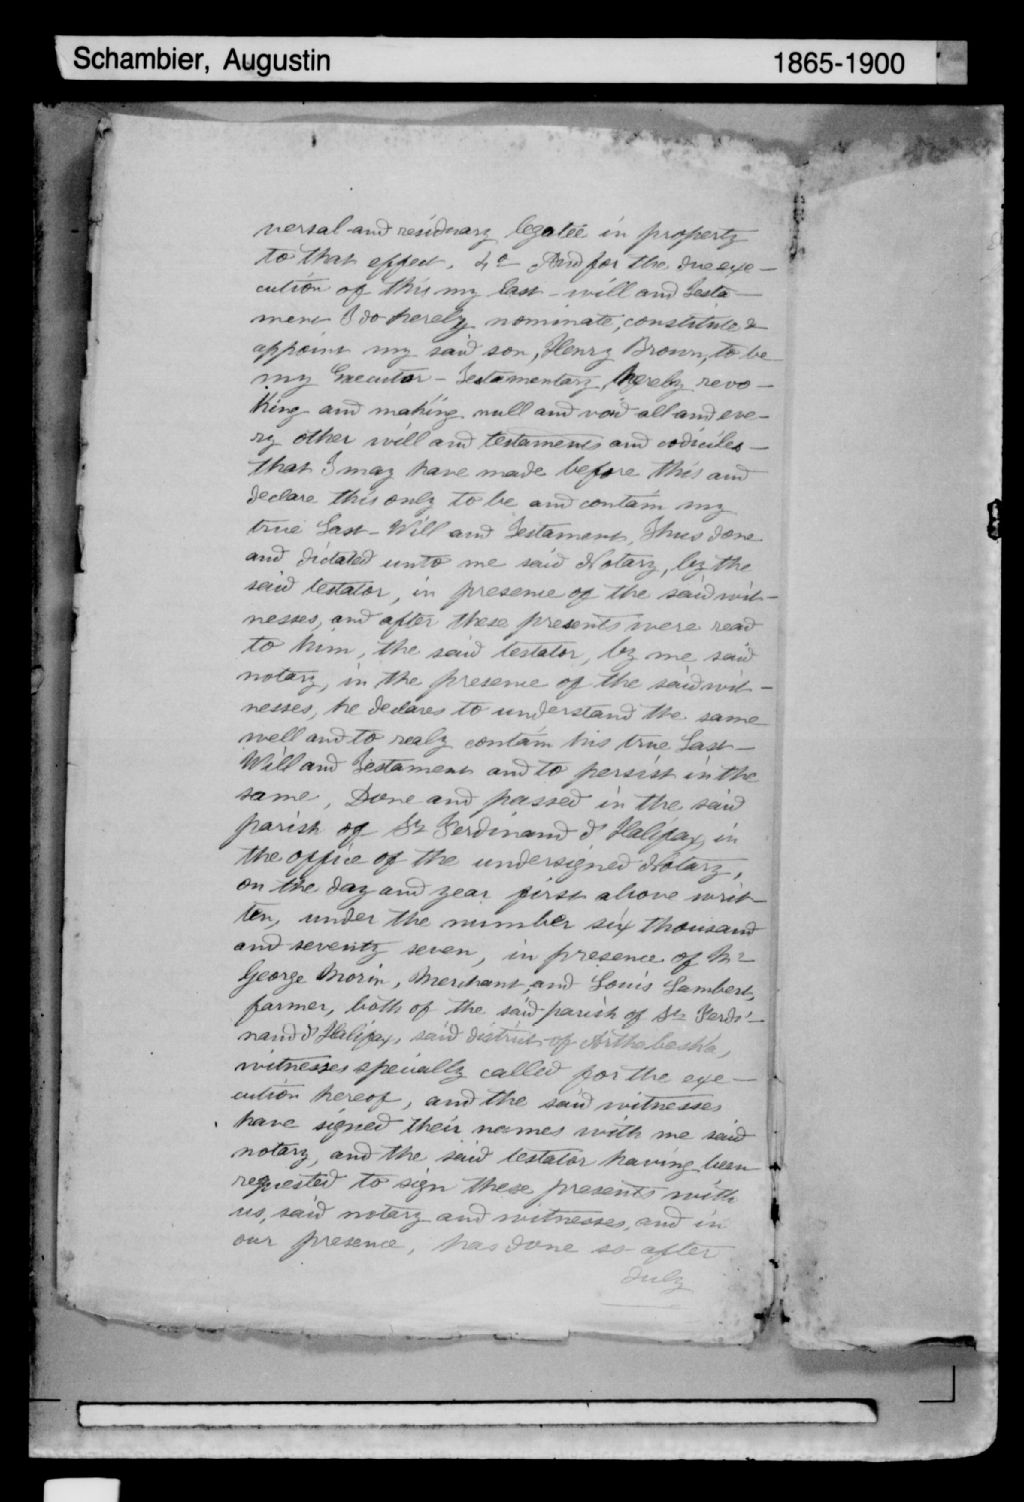 Schambier, Augustin 1865-1900
versal and residuary legatee in property
to that effect. 4° And for the due exe-
cution of this my last will and Testa-
ment I do hereby nominate, constitute &
appoint my said son, Henry Brown, to be
my Executor-Testamentary, hereby revo-
king and making null and void all and eve-
ry other will and testaments and codiciles
that I may have made before this and
declare this only to be and contain my
true Last-Will and Testament, Thus done
and dictated unto me said Notary, by the
said testator, in presence of the said wit-
nesses, and after these presents were read
to him, the said testator, by me said
notary, in the presence of the said wit-
nesses, he declares to understand the same
well and to realy contain his true Last-
Will and Testament and to persist in the
same, Done and passed in the said
parish of St Ferdinand d'Halifax, in
the office of the undersigned Notary,
on the day and year first above writ-
ten, under the number six thousand
and seventy seven, in presence of Mr
George Morin, Merchant, and Louis Lambert,
farmer, both of the said parish of St Ferdi-
nand d'Halifax, said district of Arthabaska,
witnesses specially called for the exe-
cution hereof, and the said witnesses
have signed their names with me said
notary, and the said testator having been
requested to sign these presents with
us, said notary and witnesses, and in
our presence, has done so after
duly